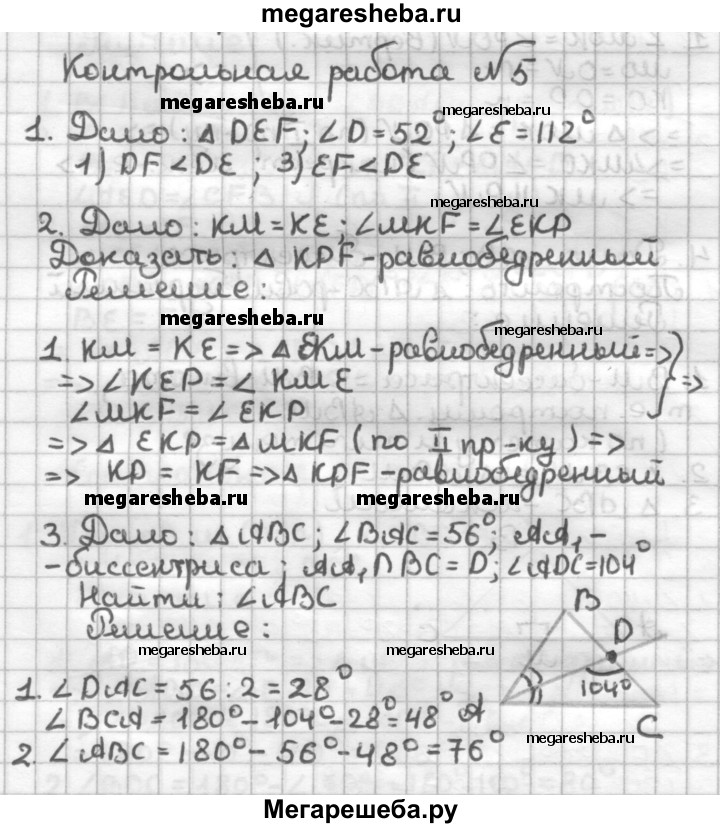 megaresheba.ru
Контрольная работа №5
megaresheba.ru
megaresheba.ru
1. Дано: △ DEF; ∠D=52°; ∠E=112°
1) DF<DE; 3) EF<DE
megaresheba.ru
2. Дано: KM=KE; ∠MKF=∠EKP
Доказать: △ KPF-равнобедренный
Решение:
megaresheba.ru
megaresheba.ru
1. KM = KE => △ EKM-равнобедренный =>
=> ∠KEP = ∠KME
∠MKF = ∠EKP
} =>
=> △ EKP = △ MKF (по II пр-ку) =>
=> KP = KF => △ KPF-равнобедренный
megaresheba.ru
megaresheba.ru
3. Дано: △ ABC; ∠BAC=56°; AA₁-
-биссектриса; AA₁∩BC=D; ∠ADC=104°
Найти: ∠ABC
Решение:
B
D
megaresheba.ru
megaresheba.ru
1. ∠DAC=56:2=28°
104°
∠BCA=180°-104°-28°=48°
A
C
megaresheba.ru
2. ∠ABC=180°-56°-48°=76°
Мегарешеба.ру